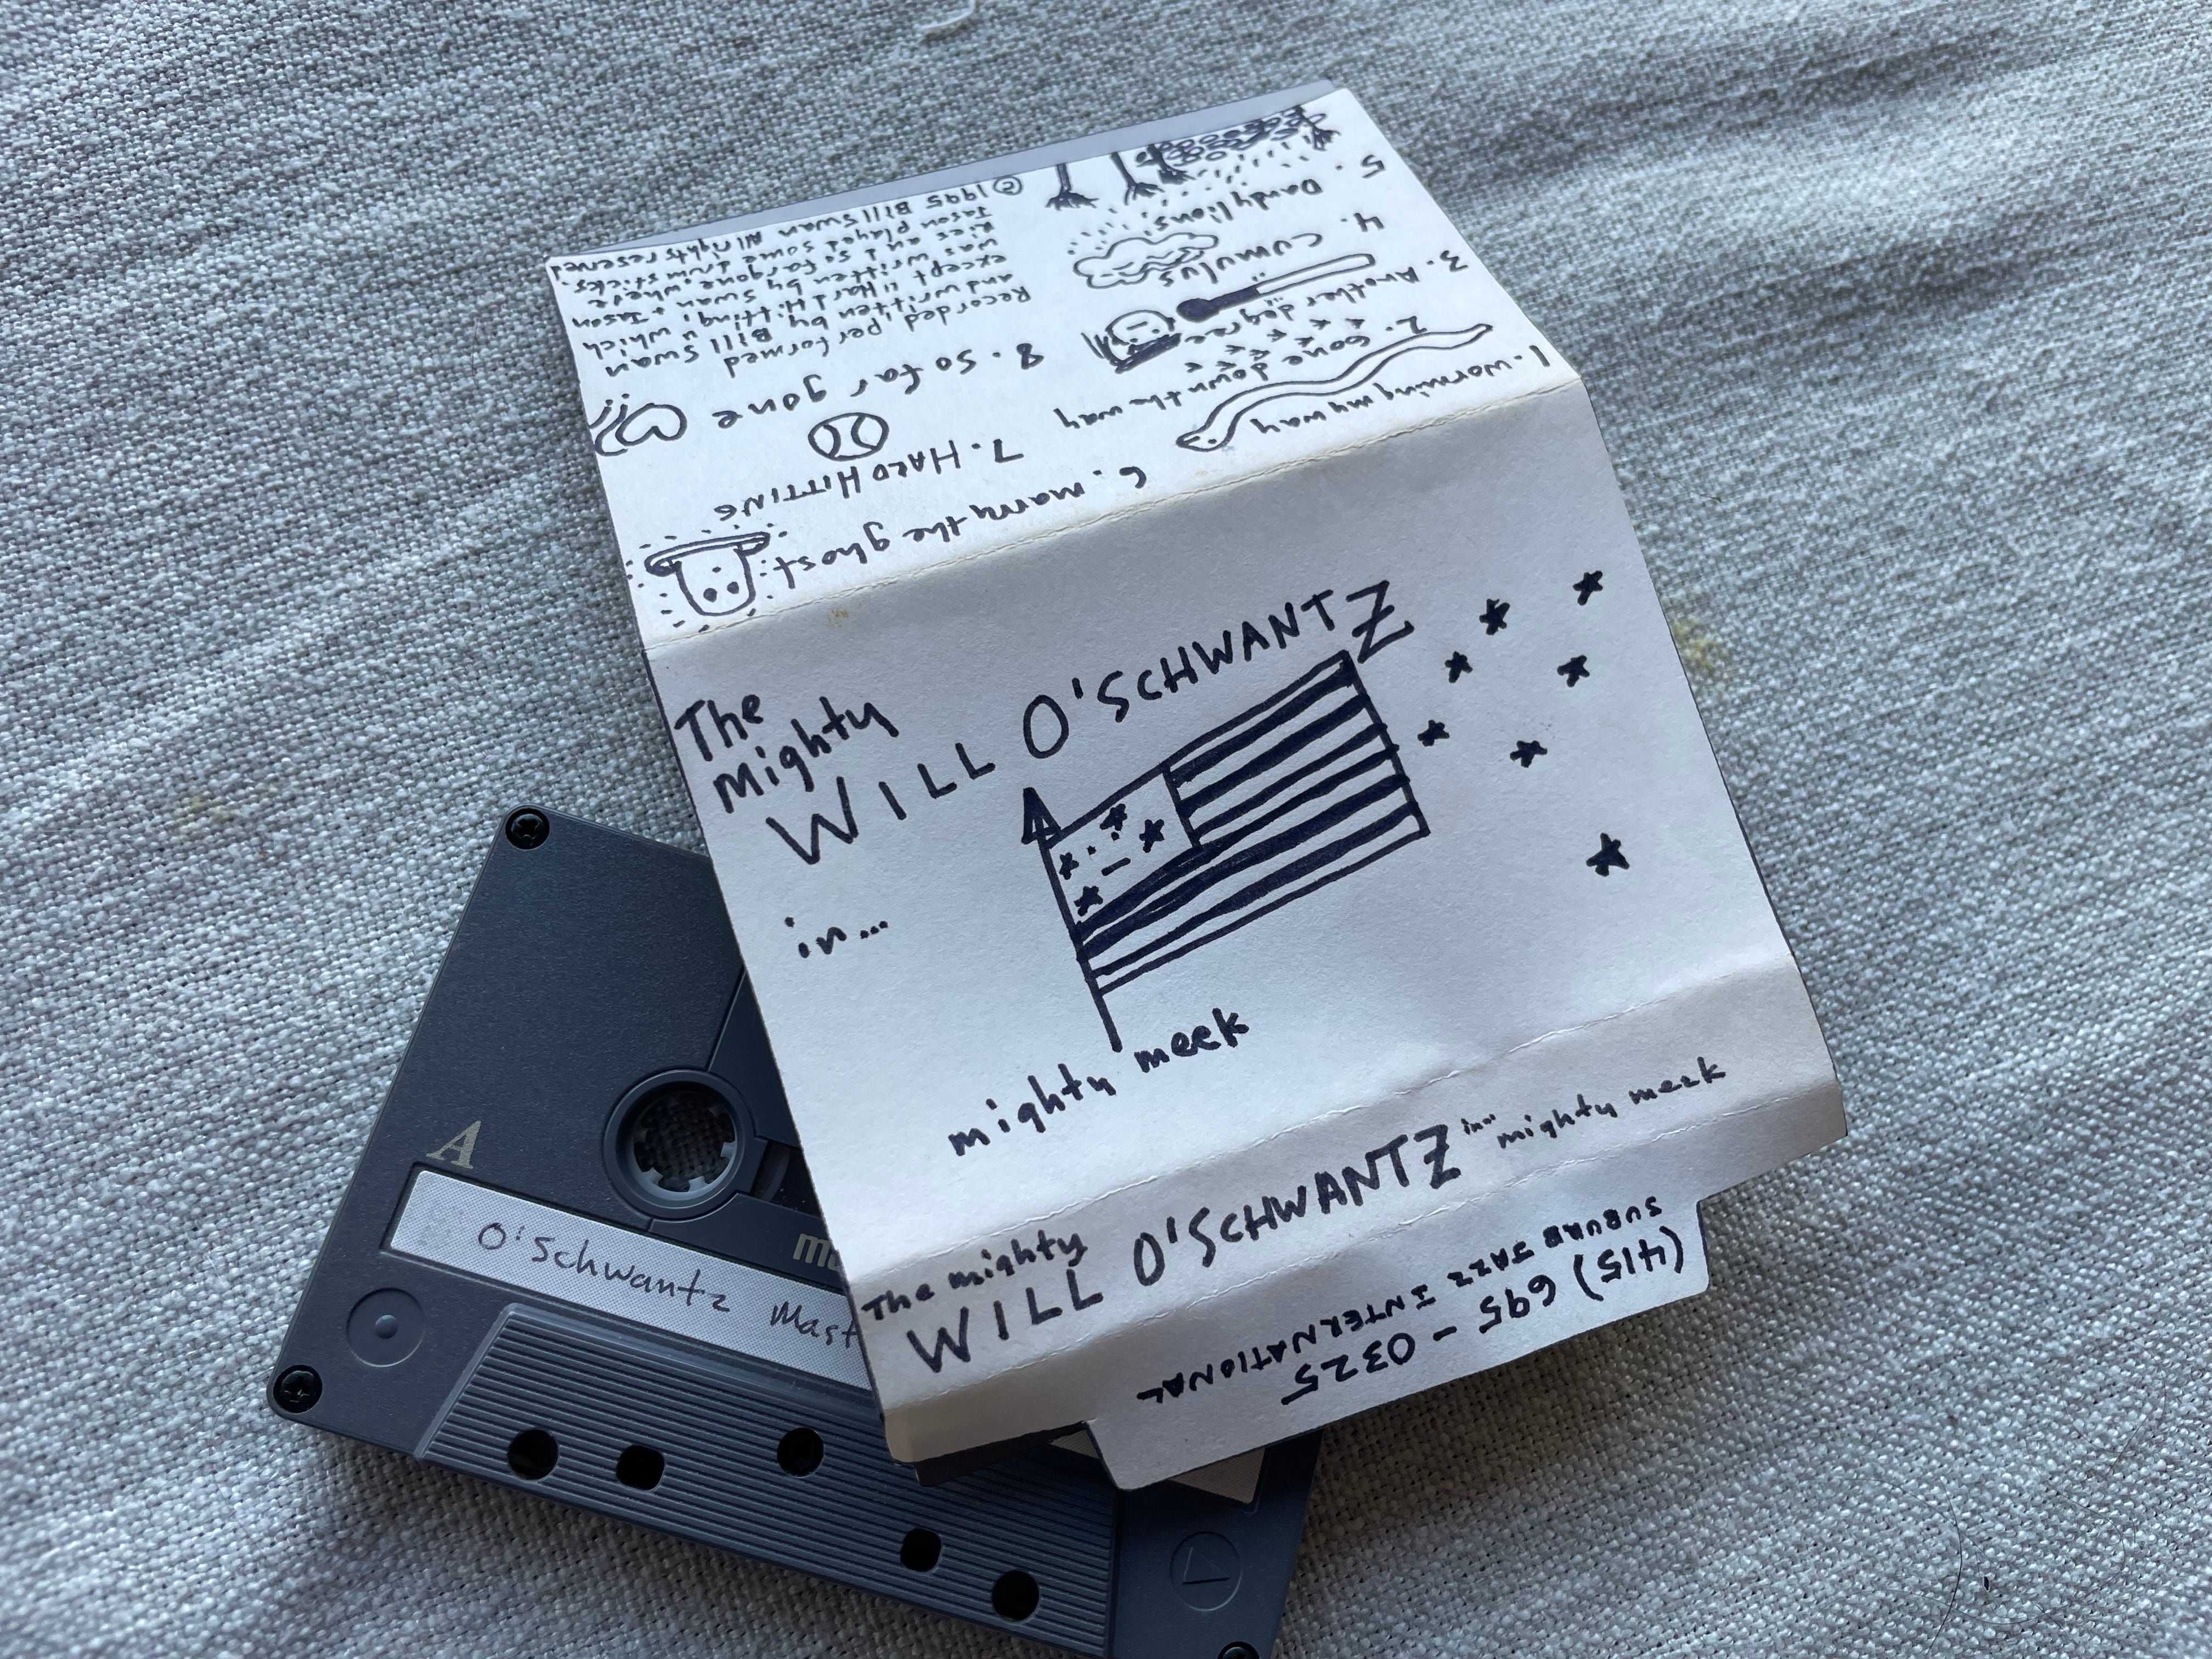 The
Mighty
WILL O'SCHWANTZ
in...
mighty meek
The mighty
WILL O'SCHWANTZ in... mighty meek
SUBURB JAZZ INTERNATIONAL
(415) 695-0325
1. worming my way
2. Gone down the way
3. Another
degree
4. cumulus
5. Dandylions
6. marry the ghost
7. HARD HITTING
8. so far gone
Recorded, performed
and written by Bill Swan
except "Hard Hitting" which
was written by Swan + Jason
Ries and so far gone, where
Jason played some drum sticks.
© 1995 Bill Swan All rights reserved
A
O'Schwantz Mast